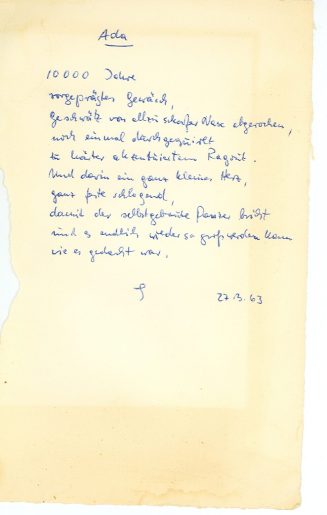 Ada
10000 Jahre
vorgeprägtes Gewäsch,
Geschwätz von allzu scharfer Nase abgerochen,
noch einmal durchgequirlt
zu härter akzentuiertem Ragout.
Und darin ein ganz kleines Herz,
ganz feste schlagend,
damit der selbstgebaute Panzer bricht
und es endlich wieder so groß werden kann
wie es gedacht war.
27.3.63